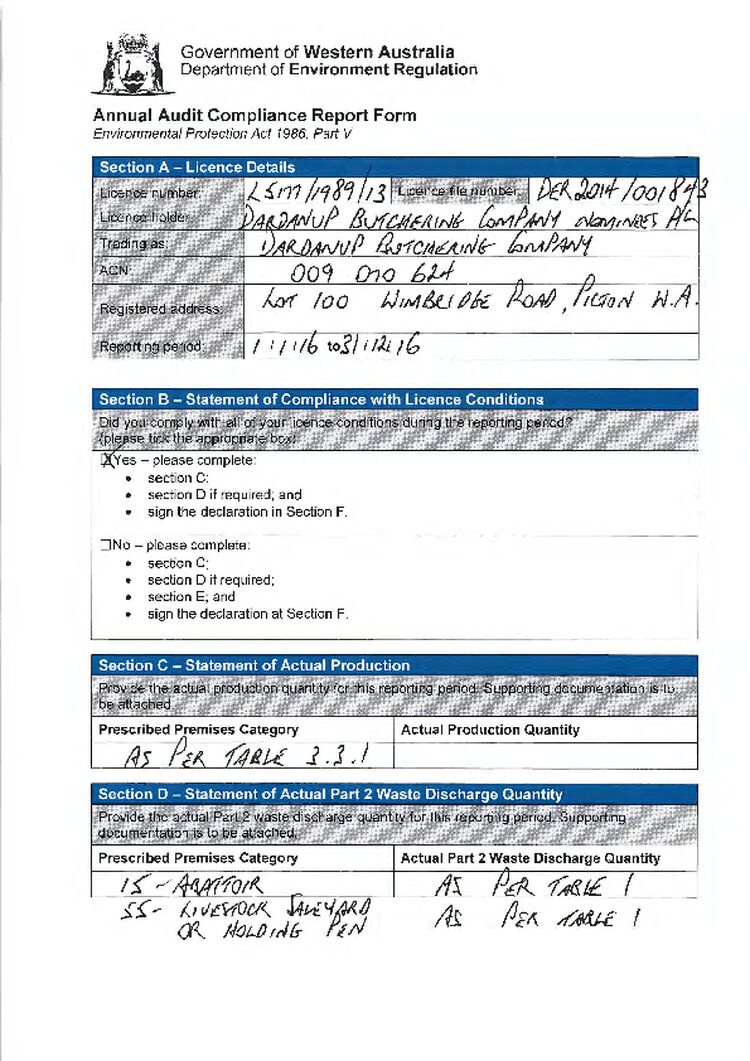 Government of Western Australia
Department of Environment Regulation
Annual Audit Compliance Report Form
Environmental Protection Act 1986, Part V
Section A – Licence Details
Licence number: L5111/1989/13 Licence file number: DER2014/001843
Licence holder: DARDANUP BUTCHERING COMPANY NOMINEES P/L
Trading as: DARDANUP BUTCHERING COMPANY
ACN: 009 010 624
Registered address: LOT 100 WIMBRIDGE ROAD, PICTON W.A.
Reporting period: 1/1/16 to 31/12/16
Section B – Statement of Compliance with Licence Conditions
Did you comply with all of your licence conditions during the reporting period?
(please tick the appropriate box)
☒Yes – please complete:
• section C;
• section D if required; and
• sign the declaration in Section F.
☐No – please complete:
• section C;
• section D if required;
• section E; and
• sign the declaration at Section F.
Section C – Statement of Actual Production
Provide the actual production quantity for this reporting period. Supporting documentation is to
be attached.
Prescribed Premises Category Actual Production Quantity
AS PER TABLE 3.3.1
Section D – Statement of Actual Part 2 Waste Discharge Quantity
Provide the actual Part 2 waste discharge quantity for this reporting period. Supporting
documentation is to be attached.
Prescribed Premises Category Actual Part 2 Waste Discharge Quantity
15 - ABATTOIR AS PER TABLE 1
55 - LIVESTOCK SALEYARD AS PER TABLE 1
OR HOLDING PEN